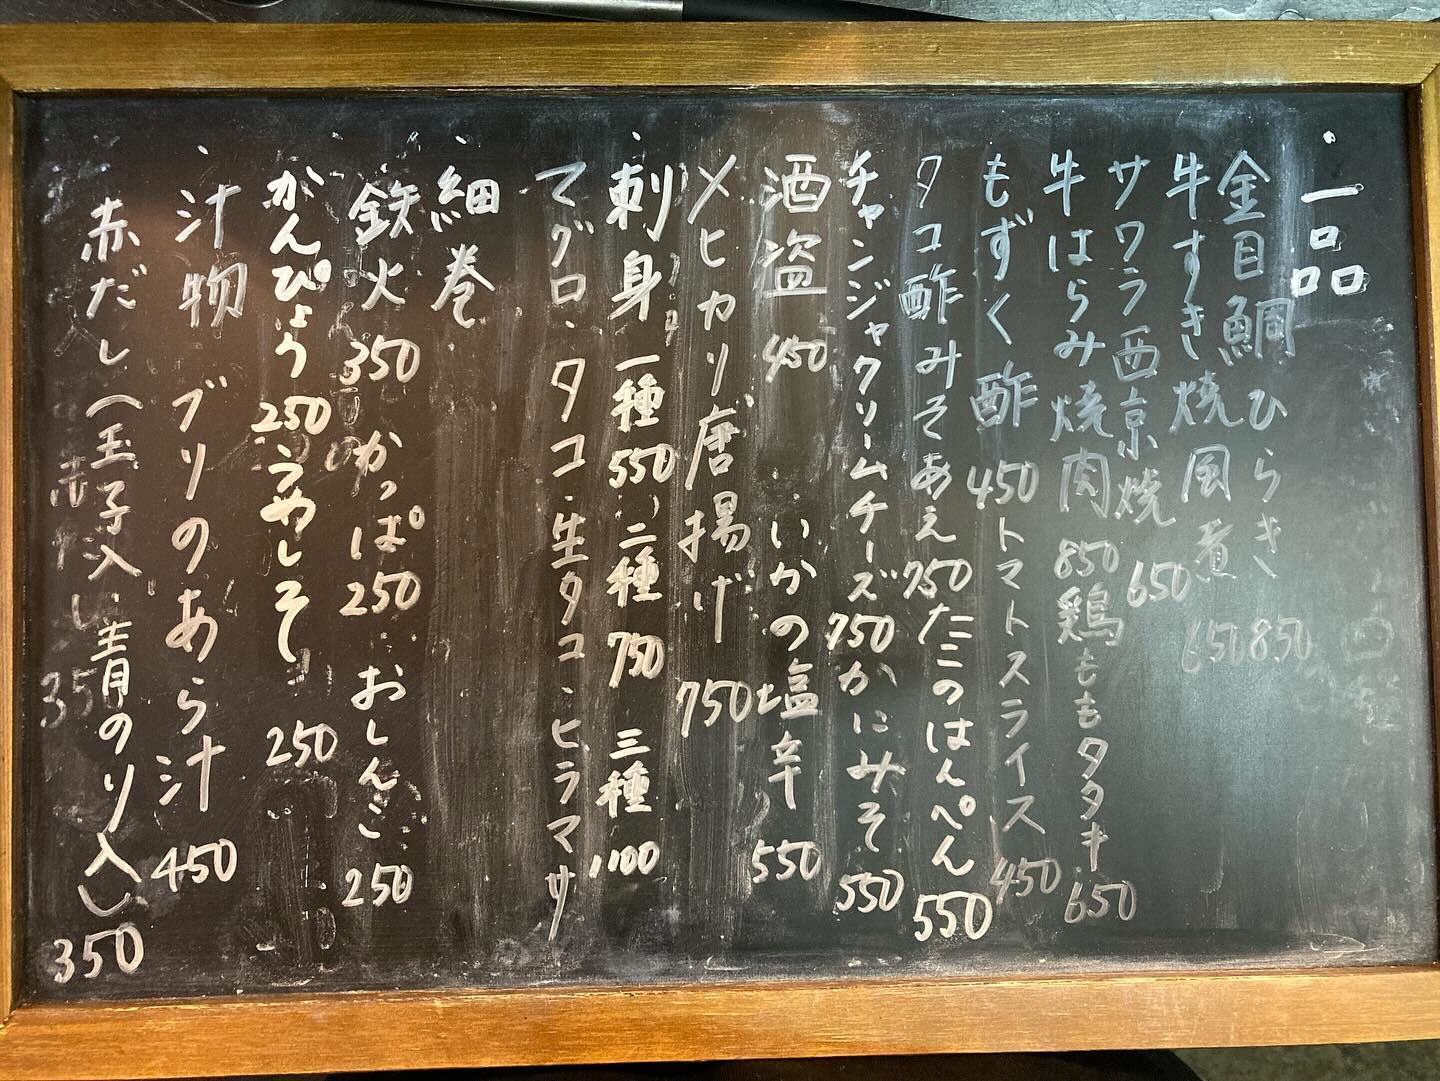 ・一品
金目鯛ひらき 850
牛すき焼風煮 650
サワラ西京焼 650
牛はらみ焼肉 850 鶏ももタタキ 650
もずく酢 450 トマトスライス 450
タコ酢みそあえ 750 たこのはんぺん 550
チャンジャクリームチーズ 750 かにみそ 550
酒盗 450 いかの塩辛 550
メヒカリ唐揚げ 750
・刺身 一種 550 二種 750 三種 1,100
マグロ・タコ・生タコ・ヒラマサ
・細巻
鉄火 350 かっぱ 250 おしんこ 250
かんぴょう 250 うめしそ 250
・汁物 ブリのあら汁 450
赤だし(玉子入い・青のり入い) 350